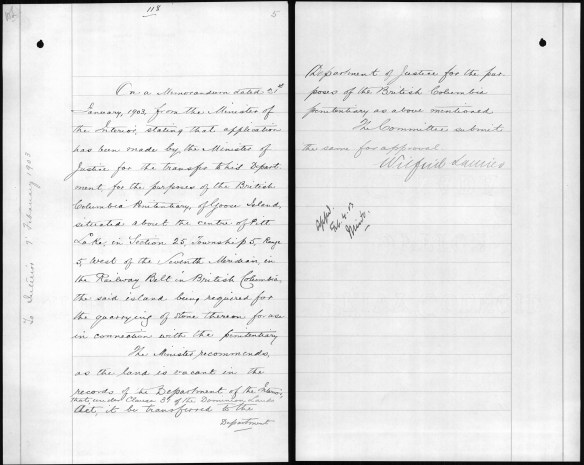 118
5
On a Memorandum dated 21st
January, 1903, from the Minister of
the Interior, stating that application
has been made by the Minister of
Justice for the transfer to his Depart-
ment, for the purposes of the British
Columbia Penitentiary, of Goose Island,
situated about the centre of Pitt
Lake, in Section 25, Township 5, Range
5 West of the Seventh Meridian, in
the Railway Belt in British Columbia,
the said island being required for
the quarrying of stone thereon for use
in connection with the penitentiary
The Minister recommends,
as the land is vacant in the
records of the Department of the Interior,
that, under Clause 31 of the Dominion Lands
Act, it be transferred to the
Department
To Interior 7 February 1903
Department of Justice for the pur-
poses of the British Columbia
penitentiary as above mentioned
The Committee submit
the same for approval
Wilfrid Laurier
Appd.
Feb. 4. 03
Minto